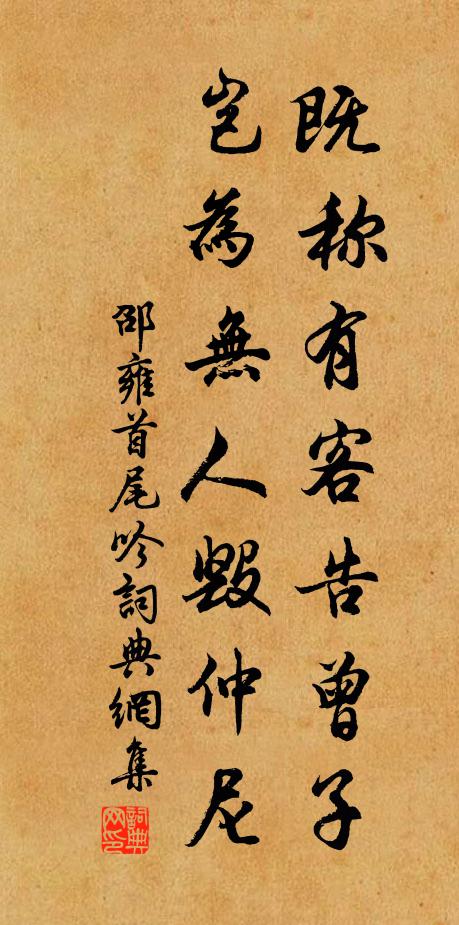 既称有客告曾子
岂為無人毀仲尼
邵雍首尾吟詞典網集
詞典网印